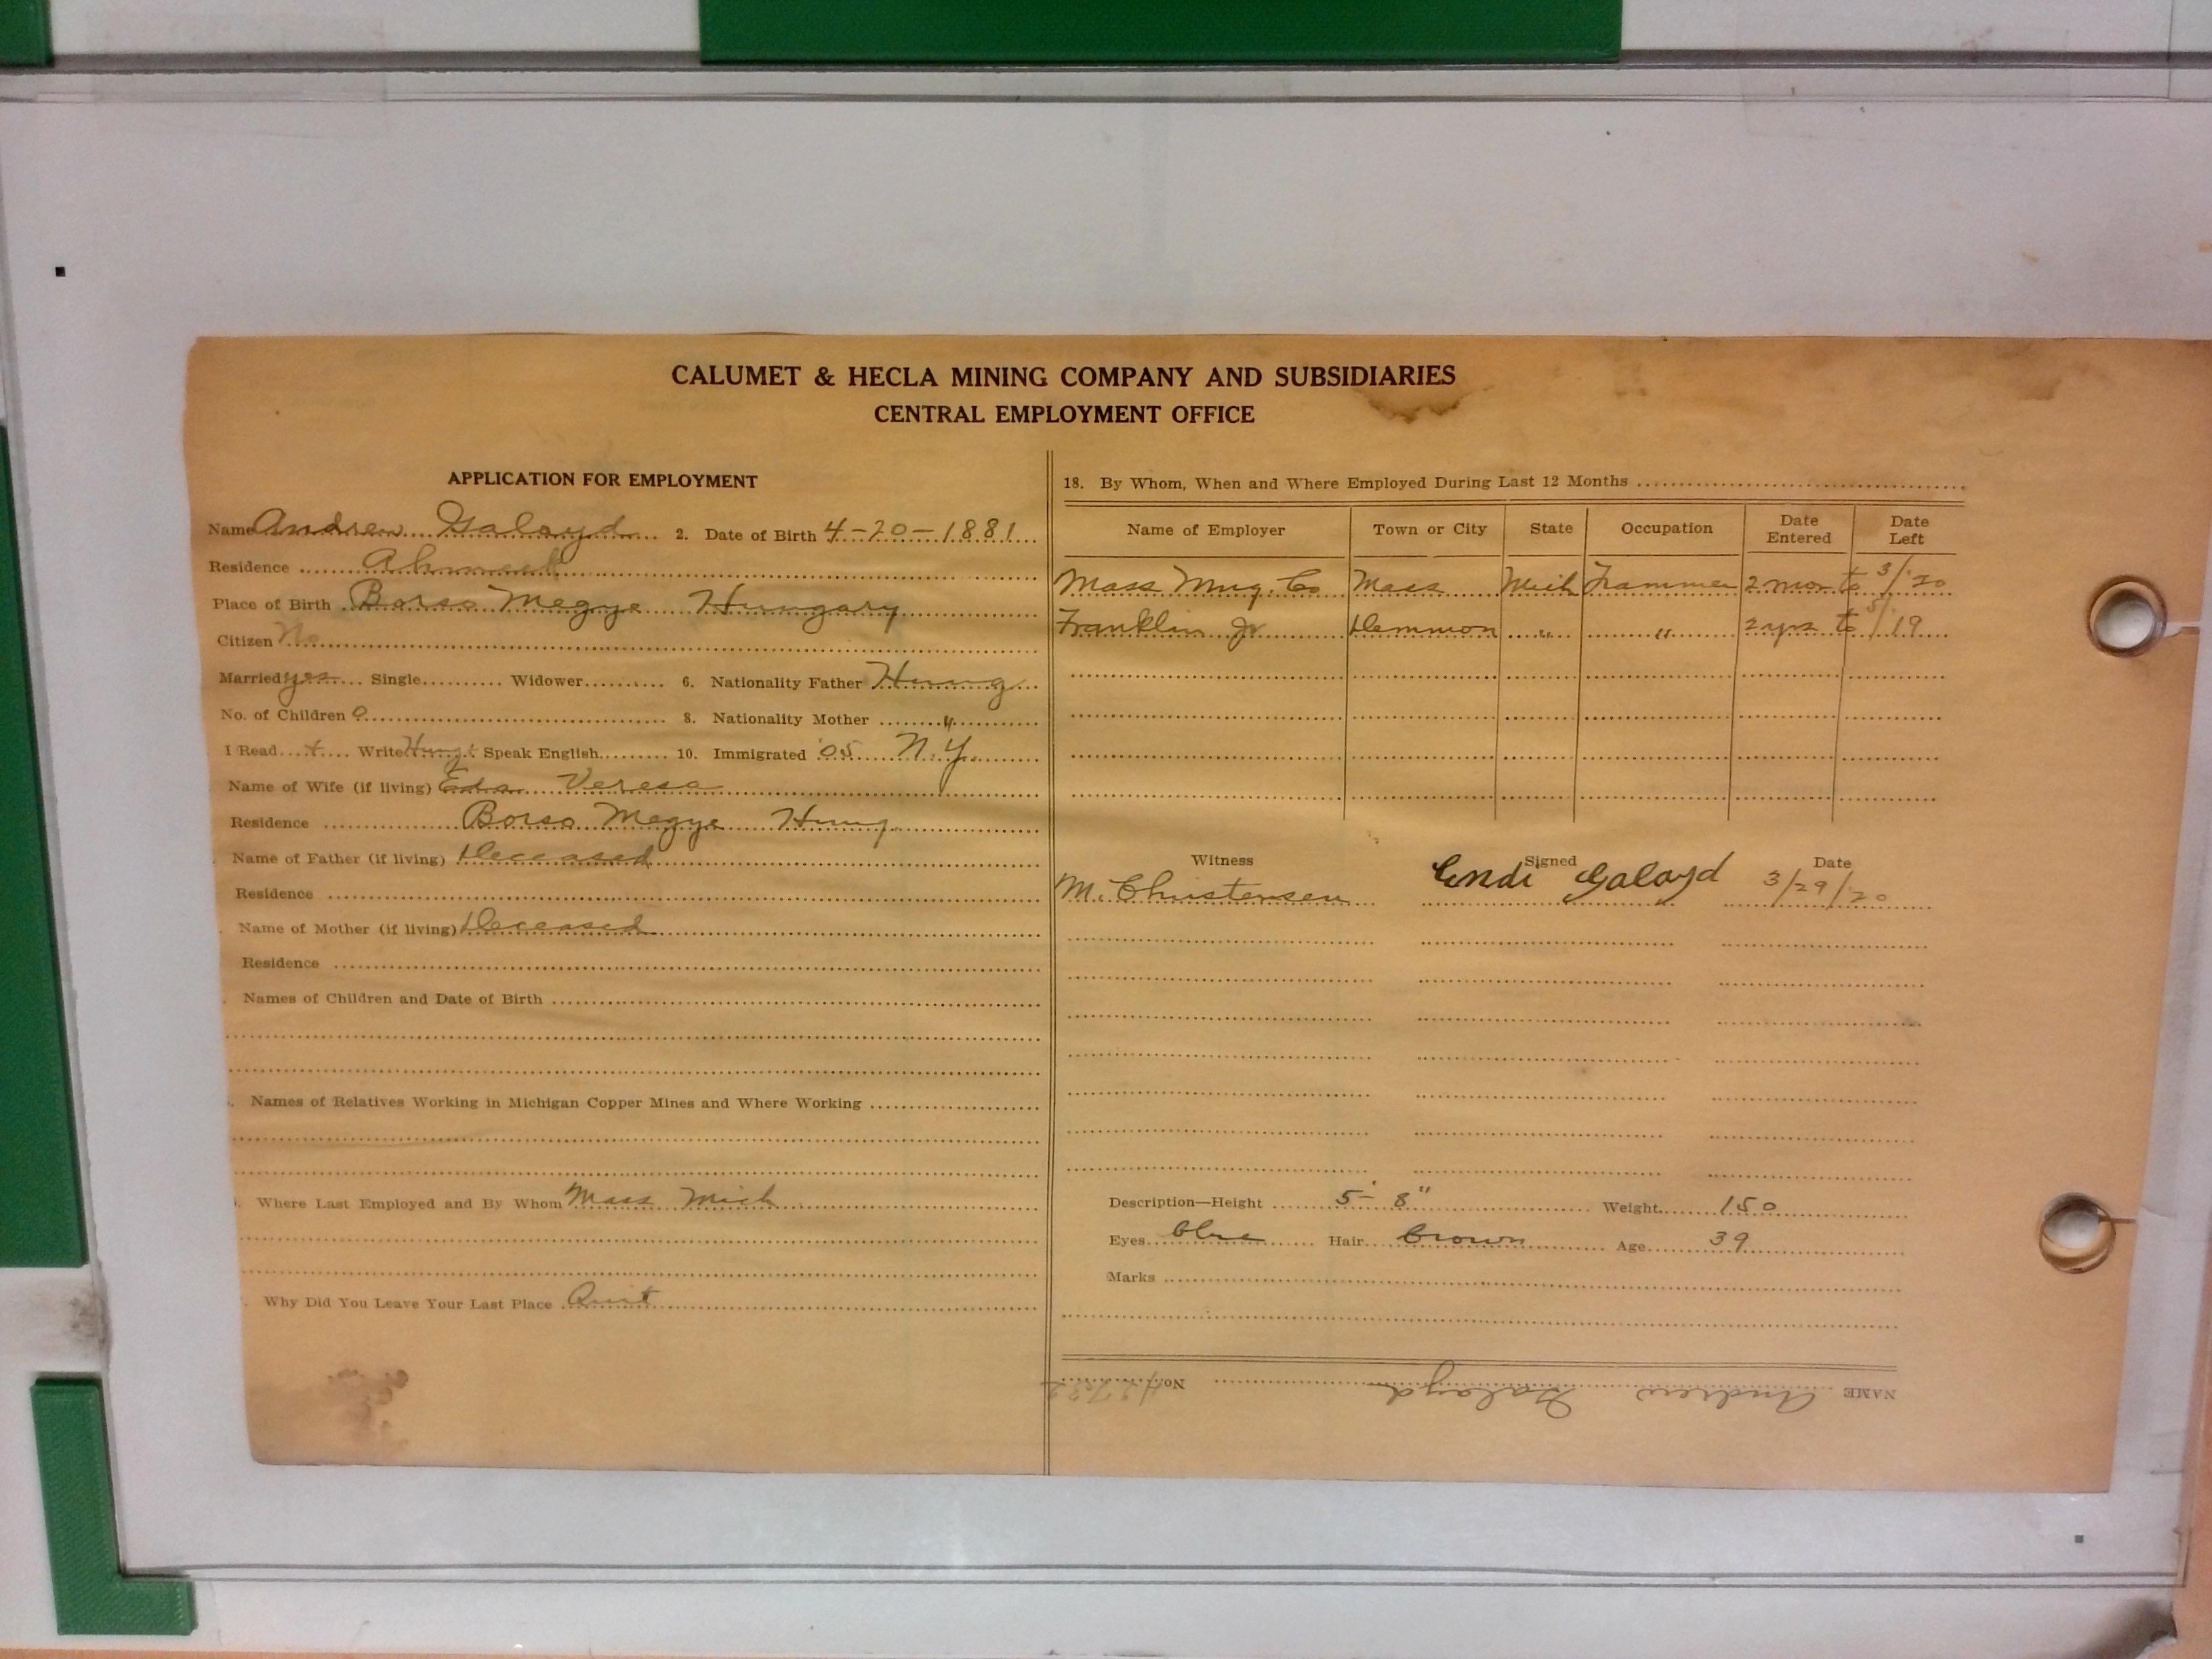 CALUMET & HECLA MINING COMPANY AND SUBSIDIARIES
CENTRAL EMPLOYMENT OFFICE
APPLICATION FOR EMPLOYMENT
Name Andrew Galayd 2. Date of Birth 4-20-1881
Residence Ahmeek
Place of Birth Borso Megye Hungary
Citizen No
Married yes Single Widower 6. Nationality Father Hung
No. of Children 0 8. Nationality Mother "
I Read + Write Hung + Speak English 10. Immigrated '05 N.Y.
Name of Wife (if living) Veresa
Residence Borso Megye Hung.
Name of Father (if living) Deceased
Residence
Name of Mother (if living) Deceased
Residence
Names of Children and Date of Birth
Names of Relatives Working in Michigan Copper Mines and Where Working
Where Last Employed and By Whom Mass Mich
Why Did You Leave Your Last Place Quit
18. By Whom, When and Where Employed During Last 12 Months
Name of Employer Town or City State Occupation Date Entered Date Left
Mass Mng. Co Mass Mich Trammer 2 mon to 3/'20
Franklin Jr Demmon " " 2 yrs to 5/19
Witness Signed Date
M. Christensen Endi Galayd 3/29/20
Description—Height 5' 8" Weight 150
Eyes blue Hair brown Age 39
Marks
NAME Andrew Galayd No.